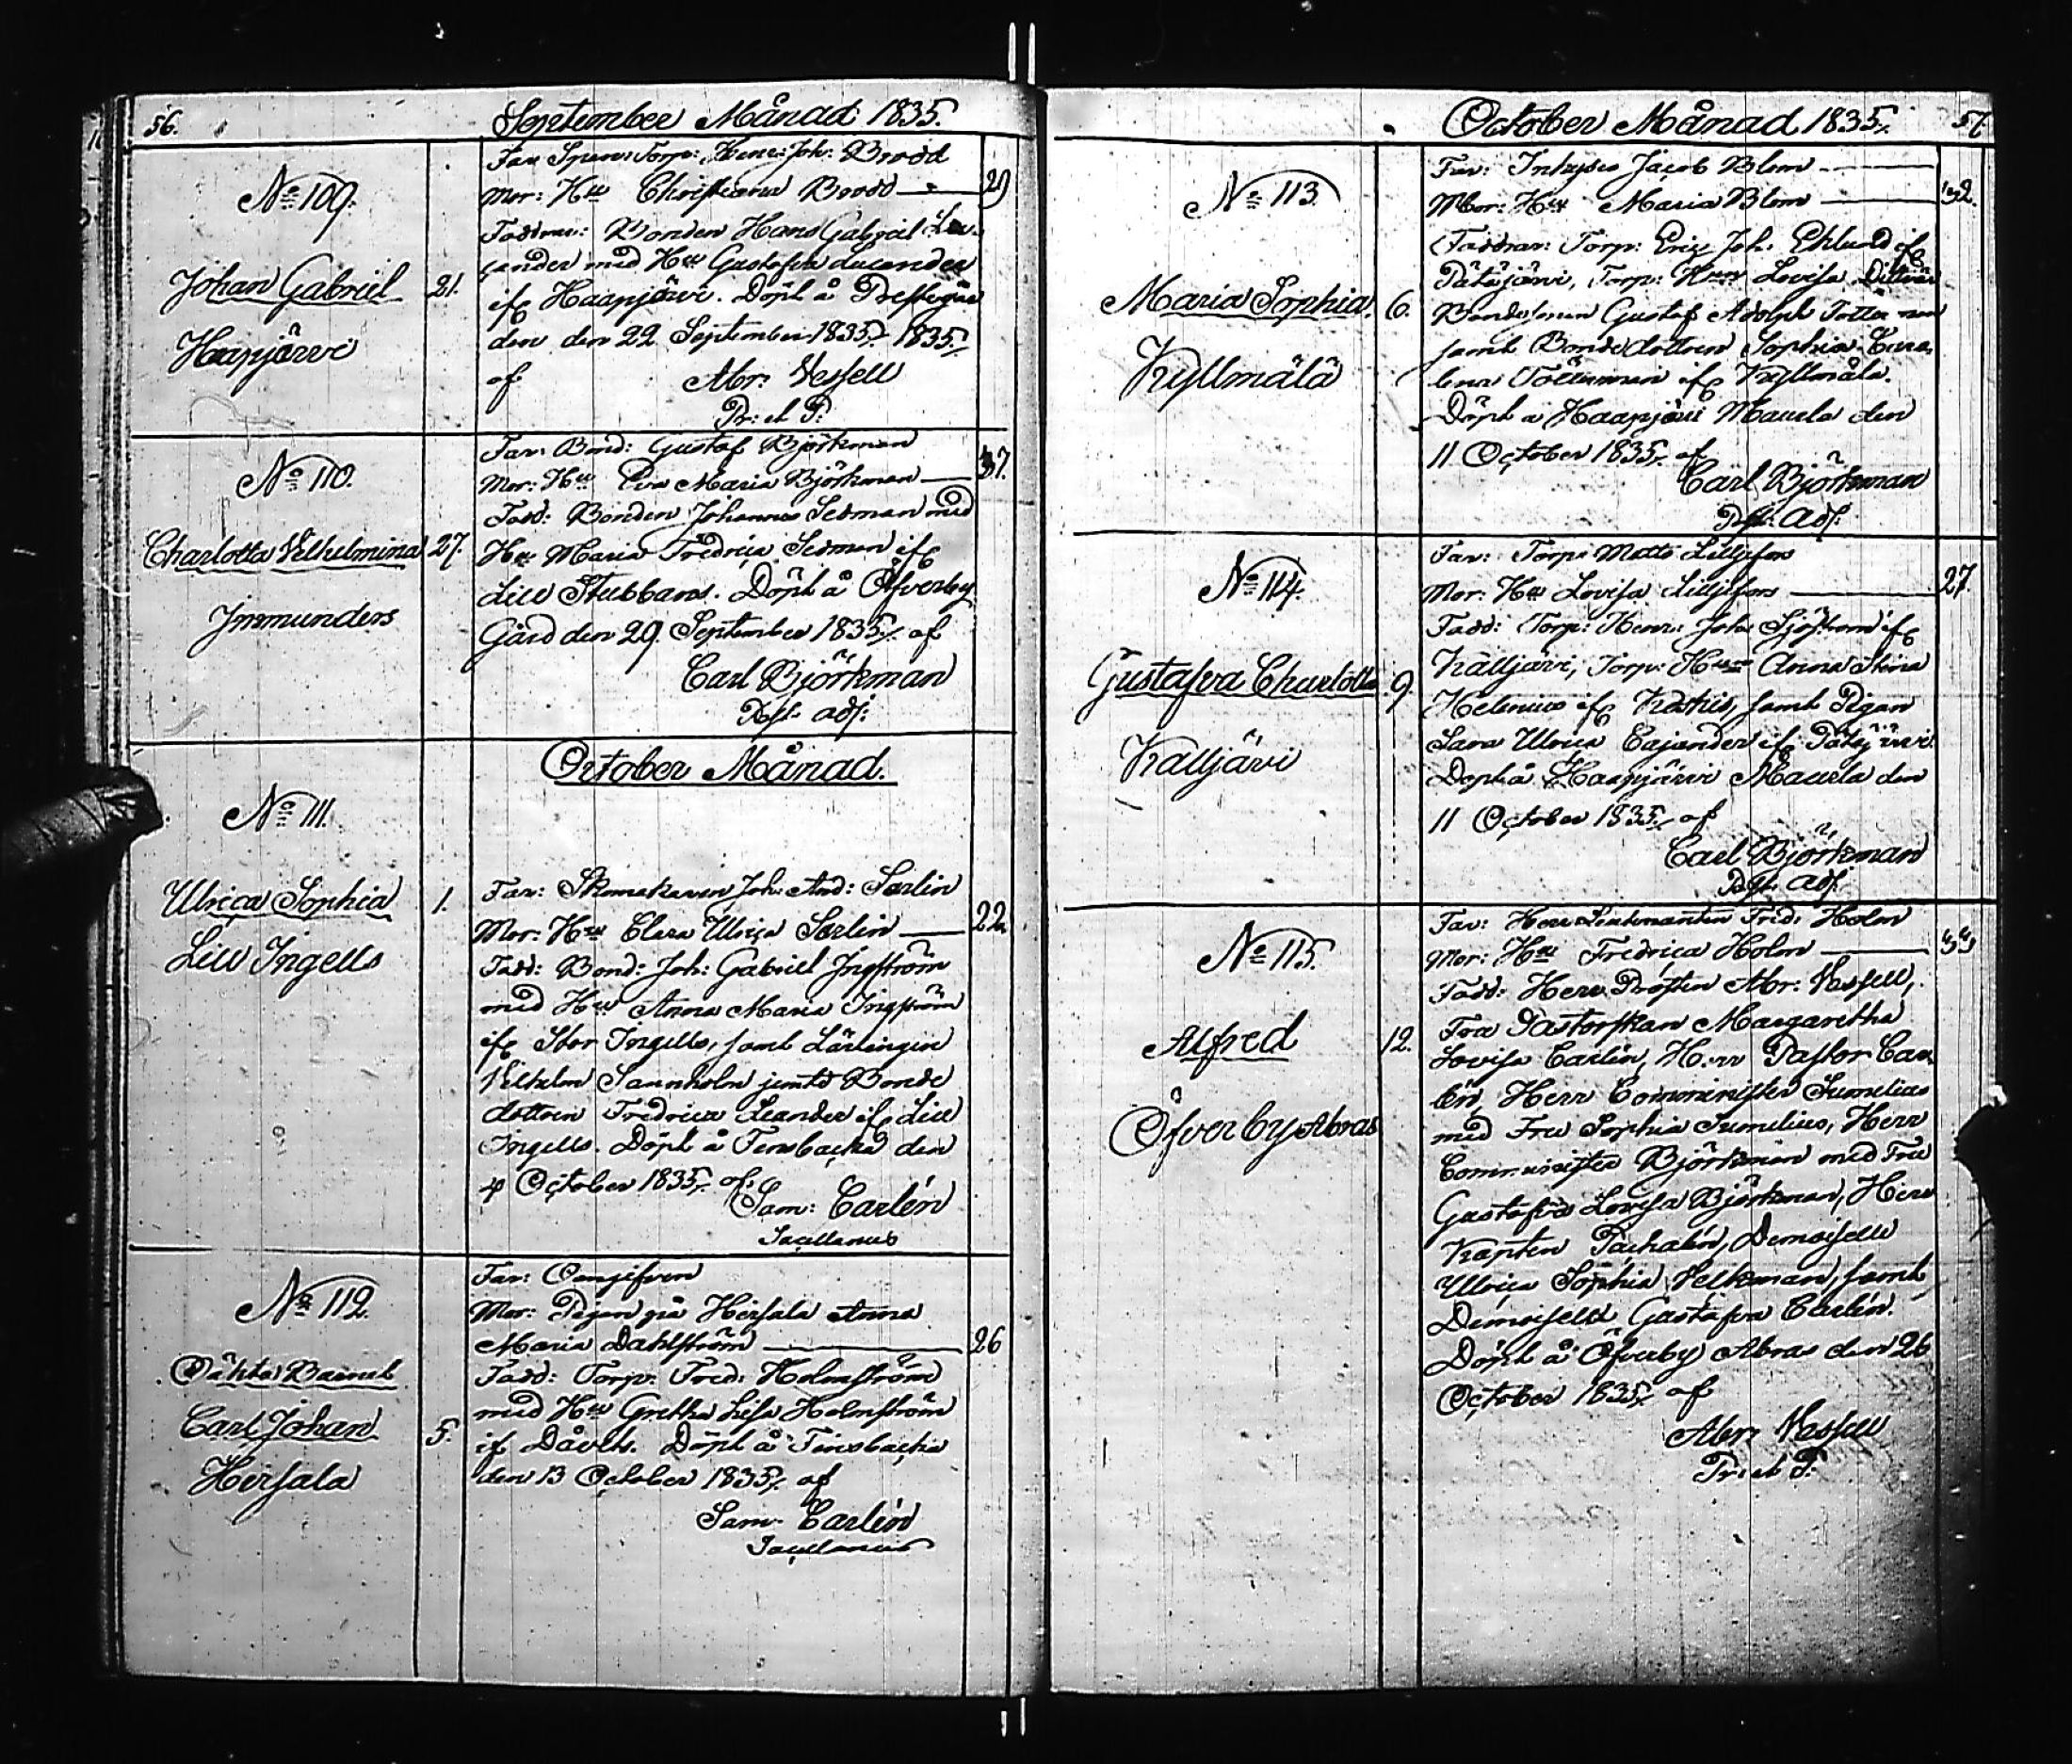 56.
September Månad 1835.
No 109.
Johan Gabriel
Haapjärvi
21.
Far Torp: Henr: Joh: Brodd
Mor: Hu Christiana Brodd
29
Faddrar: Bonden Hans Gabriel
cander med Hu Gustafva Lucander
if Haapjärvi. Döpt å Prestegår
den den 22 September 1835. 1835.
af Abr: Vessell
Pr: et P:
No 110.
Charlotta Vilhelmina
Immunders
27.
Far: Bond: Gustaf Björkman
Mor: Hu Eva Maria Björkman
37.
Fadd: Bonden Johannes Sedman med
Hu Maria Fredrica Sedman if
Lill Stubbans. Döpt å Öfverby
Gård den 29 September 1835. af
Carl Björkman
Pst. adj:
October Månad.
No 111.
Ulrica Sophia
Lill Ingells
1.
Far: Skomakaren Joh: And: Sarlin
Mor: Hu Clara Ulrica Sarlin
22.
Fadd: Bond: Joh: Gabriel Ingström
med Hu Anna Maria Ingström
if Stor Ingells, samt Lärlingen
Vilhelm Sannholm jemte Bonde
dottren Fredrica Leander if Lill
Ingells. Döpt å Fernbacka den
4 October 1835. af
Sam: Carlén
Sacellanus
No 112.
Oäkta Barnet
Carl Johan
Hirsala
5.
Far: Oangifven
Mor: Pigan på Hirsala Anna
Maria Dahlström
26
Fadd: Torp: Fred: Holmström
med Hu Gretha Lisa Holmström
if Dåvits. Döpt å Finsbacka
den 13 October 1835. af
Sam: Carlén
Sacellanus
October Månad 1835.
57
No 113.
Maria Sophia
Kyllmälä
6.
Far: Inhyses Jacob Blom
Mor: Hu Maria Blom
32.
Faddrar: Torp: Eric Joh: Ehlund if
Pätäjärvi, Torp: Hu Lovisa
Bondesonen Gustaf Adolph
samt Bondedottren Sophia Caro
lina Tötterman if Kyllmälä.
Döpt å Haapjärvi Maurla den
11 October 1835. af
Carl Björkman
Pst. Adj:
No 114.
Gustafva Charlotta
Kalljärvi
9.
Far: Torp: Matts Lilljefors
Mor: Hu Lovisa Lilljefors
27.
Fadd: Torp: Henr: Joh: Sjöström if
Kalljärvi, Torp: Hu Anna Stina
Helenius if Kaskis, samt Pigan
Sara Ulrica Cajander if Pätäjärvi.
Döpt å Haapjärvi Maurla den
11 October 1835. af
Carl Björkman
Pst. Adj.
No 115.
Alfred
Öfverby Abras
12.
Far: Herr Lieutenanten Fred: Holm
Mor: Hu Fredrica Holm
33
Fadd: Herr Prosten Abr: Vessell,
Fru Pastorskan Margaretha
Lovisa Carlén, Herr Pastor Car
lén, Herr Comminister Sumelius
med Fru Sophia Sumelius, Herr
Comminister Björkman med Fru
Gustafva Lovisa Björkman, Herr
Kapten Pachalén, Demoiselle
Ulrica Sophia Veckman, samt
Demoiselle Gustafva Carlén.
Döpt å Öfverby Abras den 26
October 1835. af
Abr: Vessell
Pr: et P: